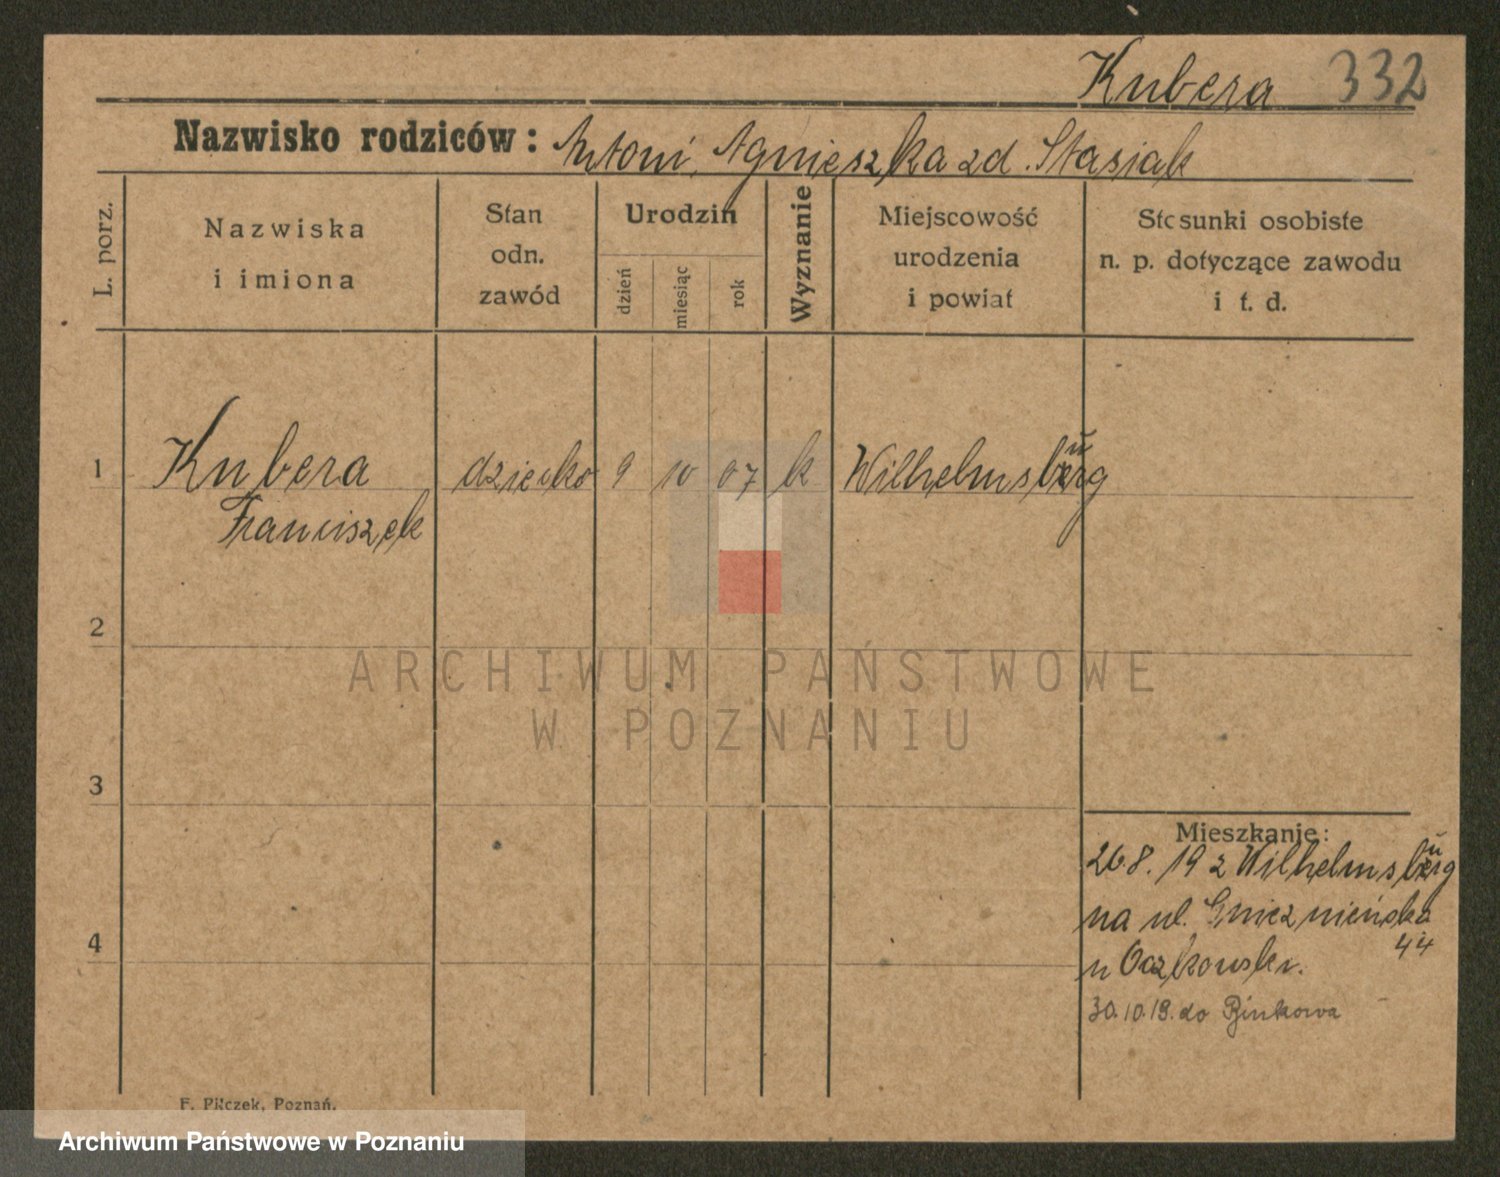 Kubera 332
Nazwisko rodziców: Antoni, Agnieszka zd. Stasiak
L. porz.
Nazwiska
i imiona
Stan
odn.
zawód
Urodzin
dzień
miesiąc
rok
Wyznanie
Miejscowość
urodzenia
i powiat
Stosunki osobiste
n. p. dotyczące zawodu
i t. d.
1 Kubera dziecko 9 10 07 k Wilhelmsburg
Franciszek
2
3
4
ARCHIWUM PAŃSTWOWE
W POZNANIU
Mieszkanie:
26.8.19 z Wilhelmsburg
na ul. Gnieznieńska
44
u Oczkowski.
30.10.19. do
F. Pilczek, Poznań.
Archiwum Państwowe w Poznaniu